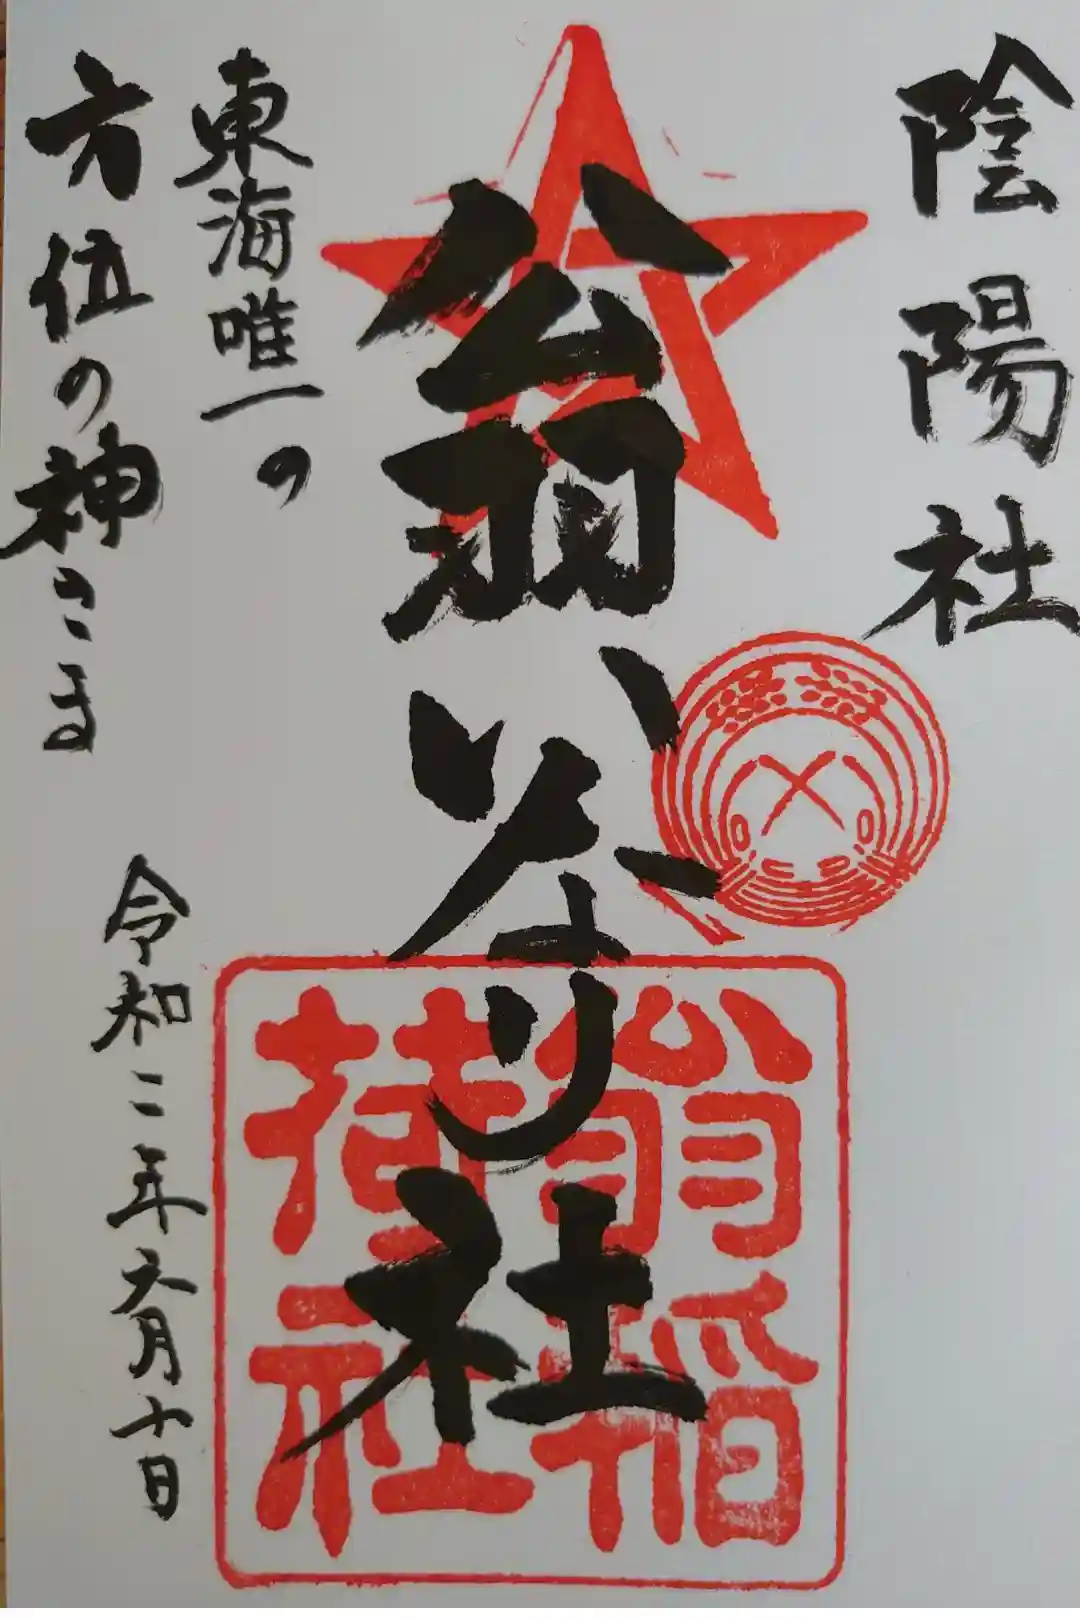 陰陽社
翁いなり社
東海唯一の
方位の神さま
令和二年六月十日
翁稲
荷社